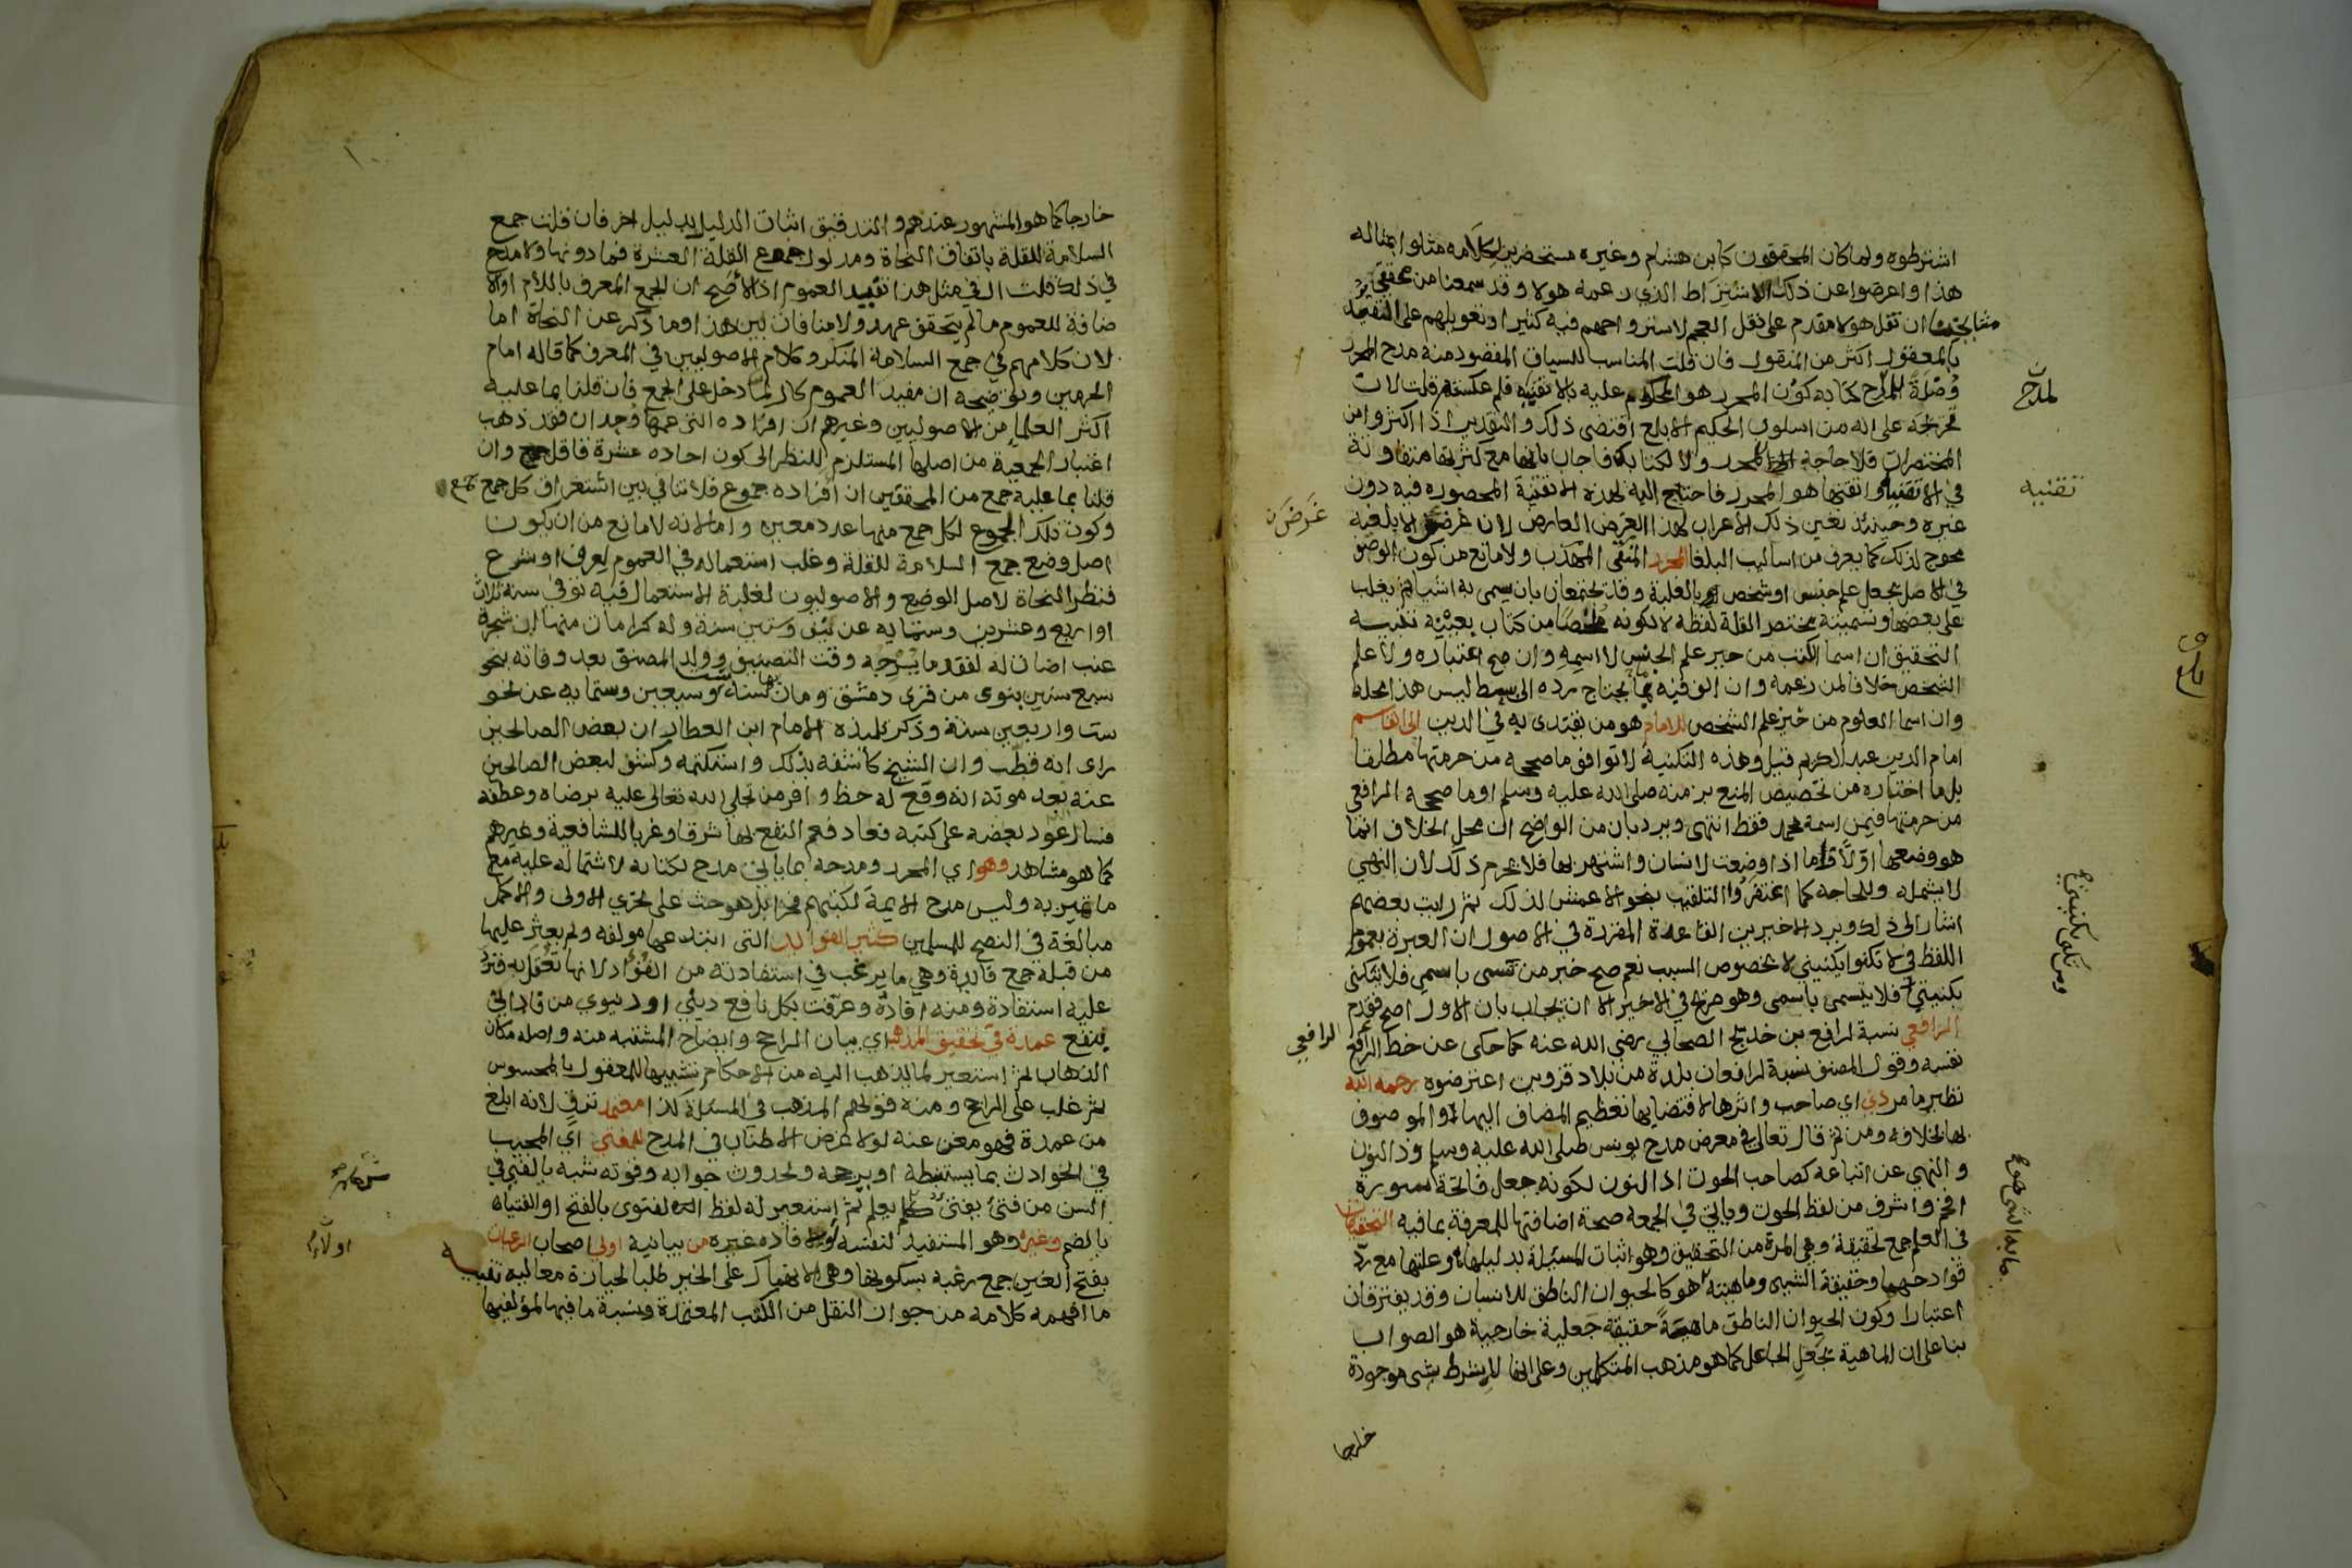 اشترطوه ولما كان المحققون كابن هشام وغيره مستحضرين لكلامه مثلوا بمثاله
هذا واعرضوا عن ذلك الاشتراط الذي زعمه هولا وقد سمعنا من محققي
مشايخنا ان نقل هولا مقدم على نقل العجم لاستر واحهم فيه كثيرا وتعويلهم على التقييد
بالمعقول اكثر من المنقول فان قلت المناسب للسياق المقصود منه مدح المحرر
وصلة للمدح كتابه كون المحرر هو المحكوم عليه بالاتقنية فلم عكسته قلت لان
تخريجه على انه من اسلوب الحكيم الابلغ اقتضى ذلك والتقدير اذا اكثروا من
المختصرات فلا حاجة الى المحرر ولا لكتابك فاجاب بانها مع كثرتها متفاوتة
في الاتقنية واتقنها هو المحرر فاحتاج اليه لهذه الاتقنية المحصوره فيه دون
غيره وحينئذ تعين ذلك الاعراب لهذا الغرض العارض لان غرض الابلغية
محوج لذلك كما يعرف من اساليب البلغا المحرر المنقى المهذب ولا مانع من كون الوصف
في الاصل يجعل علم جنس او شخص او بالغلبة وقد تجتمعان بان يسمى به اشيا ثم يغلب
على بعضها وتسميته مختصر القلة لفظه لا لكونه ملخصا من كتاب بعينه تنبيه
التحقيق ان اسما الكتب من حيز علم الجنس لا اسمه وان صح اعتباره ولا علم
الشخص خلافا لمن زعمه وان الوقفية بما يحتاج رده الى بسط ليس هذا محله
وان اسما العلوم من حيز علم الشخص للامام هو من يقتدى به في الدين ابي القاسم
امام الدين عبد الكريم قيل وهذه التكنية لا توافق ما صححه من حرمتها مطلقا
بل ما اختاره من تخصيص المنع بزمنه صلى الله عليه وسلم او ما صححه الرافعي
من حرمتها فيمن اسمه محمد فقط انتهى ويرد بان من الواضح ان محل الخلاف انما
هو وضعها اولا فاما اذا وضعت لانسان واشتهر بها فلا يحرم ذلك لان النهي
لا يشمله وللحاجة كما اغتفروا التلقيب بنحو الاعمش لذلك ثم رايت بعضهم
اشار الى ذلك ويرد الاخيرين القاعدة المقررة في الاصول ان العبرة بعموم
اللفظ في لا تكنوا بكنيتي لا بخصوص السبب نعم صح خبر من تسمى باسمي فلا يتكنى
بكنيتي فلا يتسمى باسمي وهو صريح في الاخير الا ان يجاب بان الاول اصح فقدم
الرافعي نسبة لرافع بن خديج الصحابي رضي الله عنه كما حكى عن خط الرافعي
نفسه وقول المصنف نسبة لرافعان بلدة من بلاد قزوين اعترضوه رحمه الله
نظير ما مر ذي اي صاحب واثرها لاقتضايها تعظيم المضاف اليها او الموصوف
بها بخلافه ومن ثم قال تعالى في معرض مدح يونس صلى الله عليه وسلم وذا النون
والنهي عن اتباعه كصاحب الحوت اذ النون لكونه جعل فاتحة سورة
افخم واشرف من لفظ الحوت وياتي في الجمعة صحة اضافتها للمعرفة بما فيه التحقيقات
في العلم جمع تحقيقة وهي المرة من التحقيق وهو اثبات المسئلة بدليلها او علتها مع رد
قوادحها وحقيقة الشيء وماهيته ما به هو كالحيوان الناطق للانسان وقد يفترقان
اعتبارا وكون الحيوان الناطق ماهية حقيقة جعلية خارجية هو الصواب
بنا على ان الماهية بجعل الجاعل كما هو مذهب المتكلمين وعلى انها لا بشرط شي موجودة
خارجا
لمدح
تقنيه
غرض
الرافعي
خارجا كما هو المشهور عندهم والتدقيق اثبات الدليل بدليل اخر فان قلت جمع
السلامة للقلة باتفاق النحاة ومدلول جموع القلة العشرة فما دونها ولا مدح
في ذلك قلت ال في مثل هذا تفيد العموم اذ الاصح ان الجمع المعرف باللام او الا
ضافة للعموم ما لم يتحقق عهد ولا منافاة بين هذا وما ذكر عن النحاة اما
لان كلامهم في جمع السلامة المنكر وكلام الاصوليين في المعرف كما قاله امام
الحرمين وتوضيحه ان مفيد العموم كال لما دخل على الجمع فان قلنا بما عليه
اكثر العلما من الاصوليين وغيرهم ان افراده التي عمها وحدان فقد ذهب
اعتبار الجمعية من اصلها المستلزم للنظر الى كون احاده عشرة فاقل وان
قلنا بما عليه جمع من المحققين ان افراده جموع فلا تنافي بين استغراق كل جمع جمع
وكون تلك الجموع لكل جمع منها عدد معين واما لانه لا مانع من ان يكون
اصل وضع جمع السلامة للقلة وغلب استعماله في العموم لعرف او شرع
فنظر النحاة لاصل الوضع والاصوليون لغلبة الاستعمال فيه توفي سنة ثلاث
او اربع وعشرين وستمايه عن نيف وستين سنة وله كرامات منها ان شجرة
عنب اضات له لفقد ما يسرجه وقت التصنيف وولد المصنف بعد وفاته بنحو
سبع سنين بنوى من قرى دمشق ومات بها سنة ست وسبعين وستمايه عن نحو
ست واربعين سنة وذكر تلميذه الامام ابن العطار ان بعض الصالحين
راى انه قطب وان الشيخ كاشفه بذلك واستكتمه وكشف لبعض الصالحين
عنه بعد موته انه وقع له حظ وافر من تجلي الله تعالى عليه برضاه وعطفه
فسال عود بعضه على كتبه فعاد فعم النفع بها شرقا وغربا للشافعية وغيرهم
كما هو مشاهد وهو اي المحرر ومدحه بما ياتي مدح لكتابه لاشتماله عليه مع
ما تميز به وليس مدح الايمة لكتبهم فخرا بل هو حث على تحري الاولى والاكمل
مبالغة في النصح للمسلمين كثير الفوايد التي ابتدعها مولفه ولم يعثر عليها
من قبله جمع فايدة وهي ما يرغب في استفادته من الفؤاد لانها تعقل به فترد
عليه استفادة ومنه افادة وعرفت بكل نافع ديني او دنيوي من فاد اتى
بنفع عمدة في تحقيق المذهب اي بيان الراجح وايضاح المشتبه منه واصله مكان
الذهاب ثم استعير لما يذهب اليه من الاحكام تشبيها للمعقول بالمحسوس
ثم غلب على الراجح ومنه قولهم المذهب في المسئلة كذا معتمد ترق لانه ابلغ
من عمدة فهو مغن عنه لولا غرض الاطناب في المدح للمفتي اي المجيب
في الحوادث بما يستنبطه او يرجحه ولحدوث جوابه وقوته شبه بالفتي في
السن من فتئ يفتئ كعلم يعلم ثم استعير له لفظ الفتوى بالفتح او الفتياه
بالضم وغيره وهو المستفيد لنفسه او لافاده غيره من بيانية اولي اصحاب الرغبات
بفتح الغين جمع رغبه بسكونها وهي الانهماك على الخير طلبا لحيازة معاليه تنبيه
ما افهمه كلامه من جواز النقل من الكتب المعتمدة ونسبة ما فيها لمؤلفيها